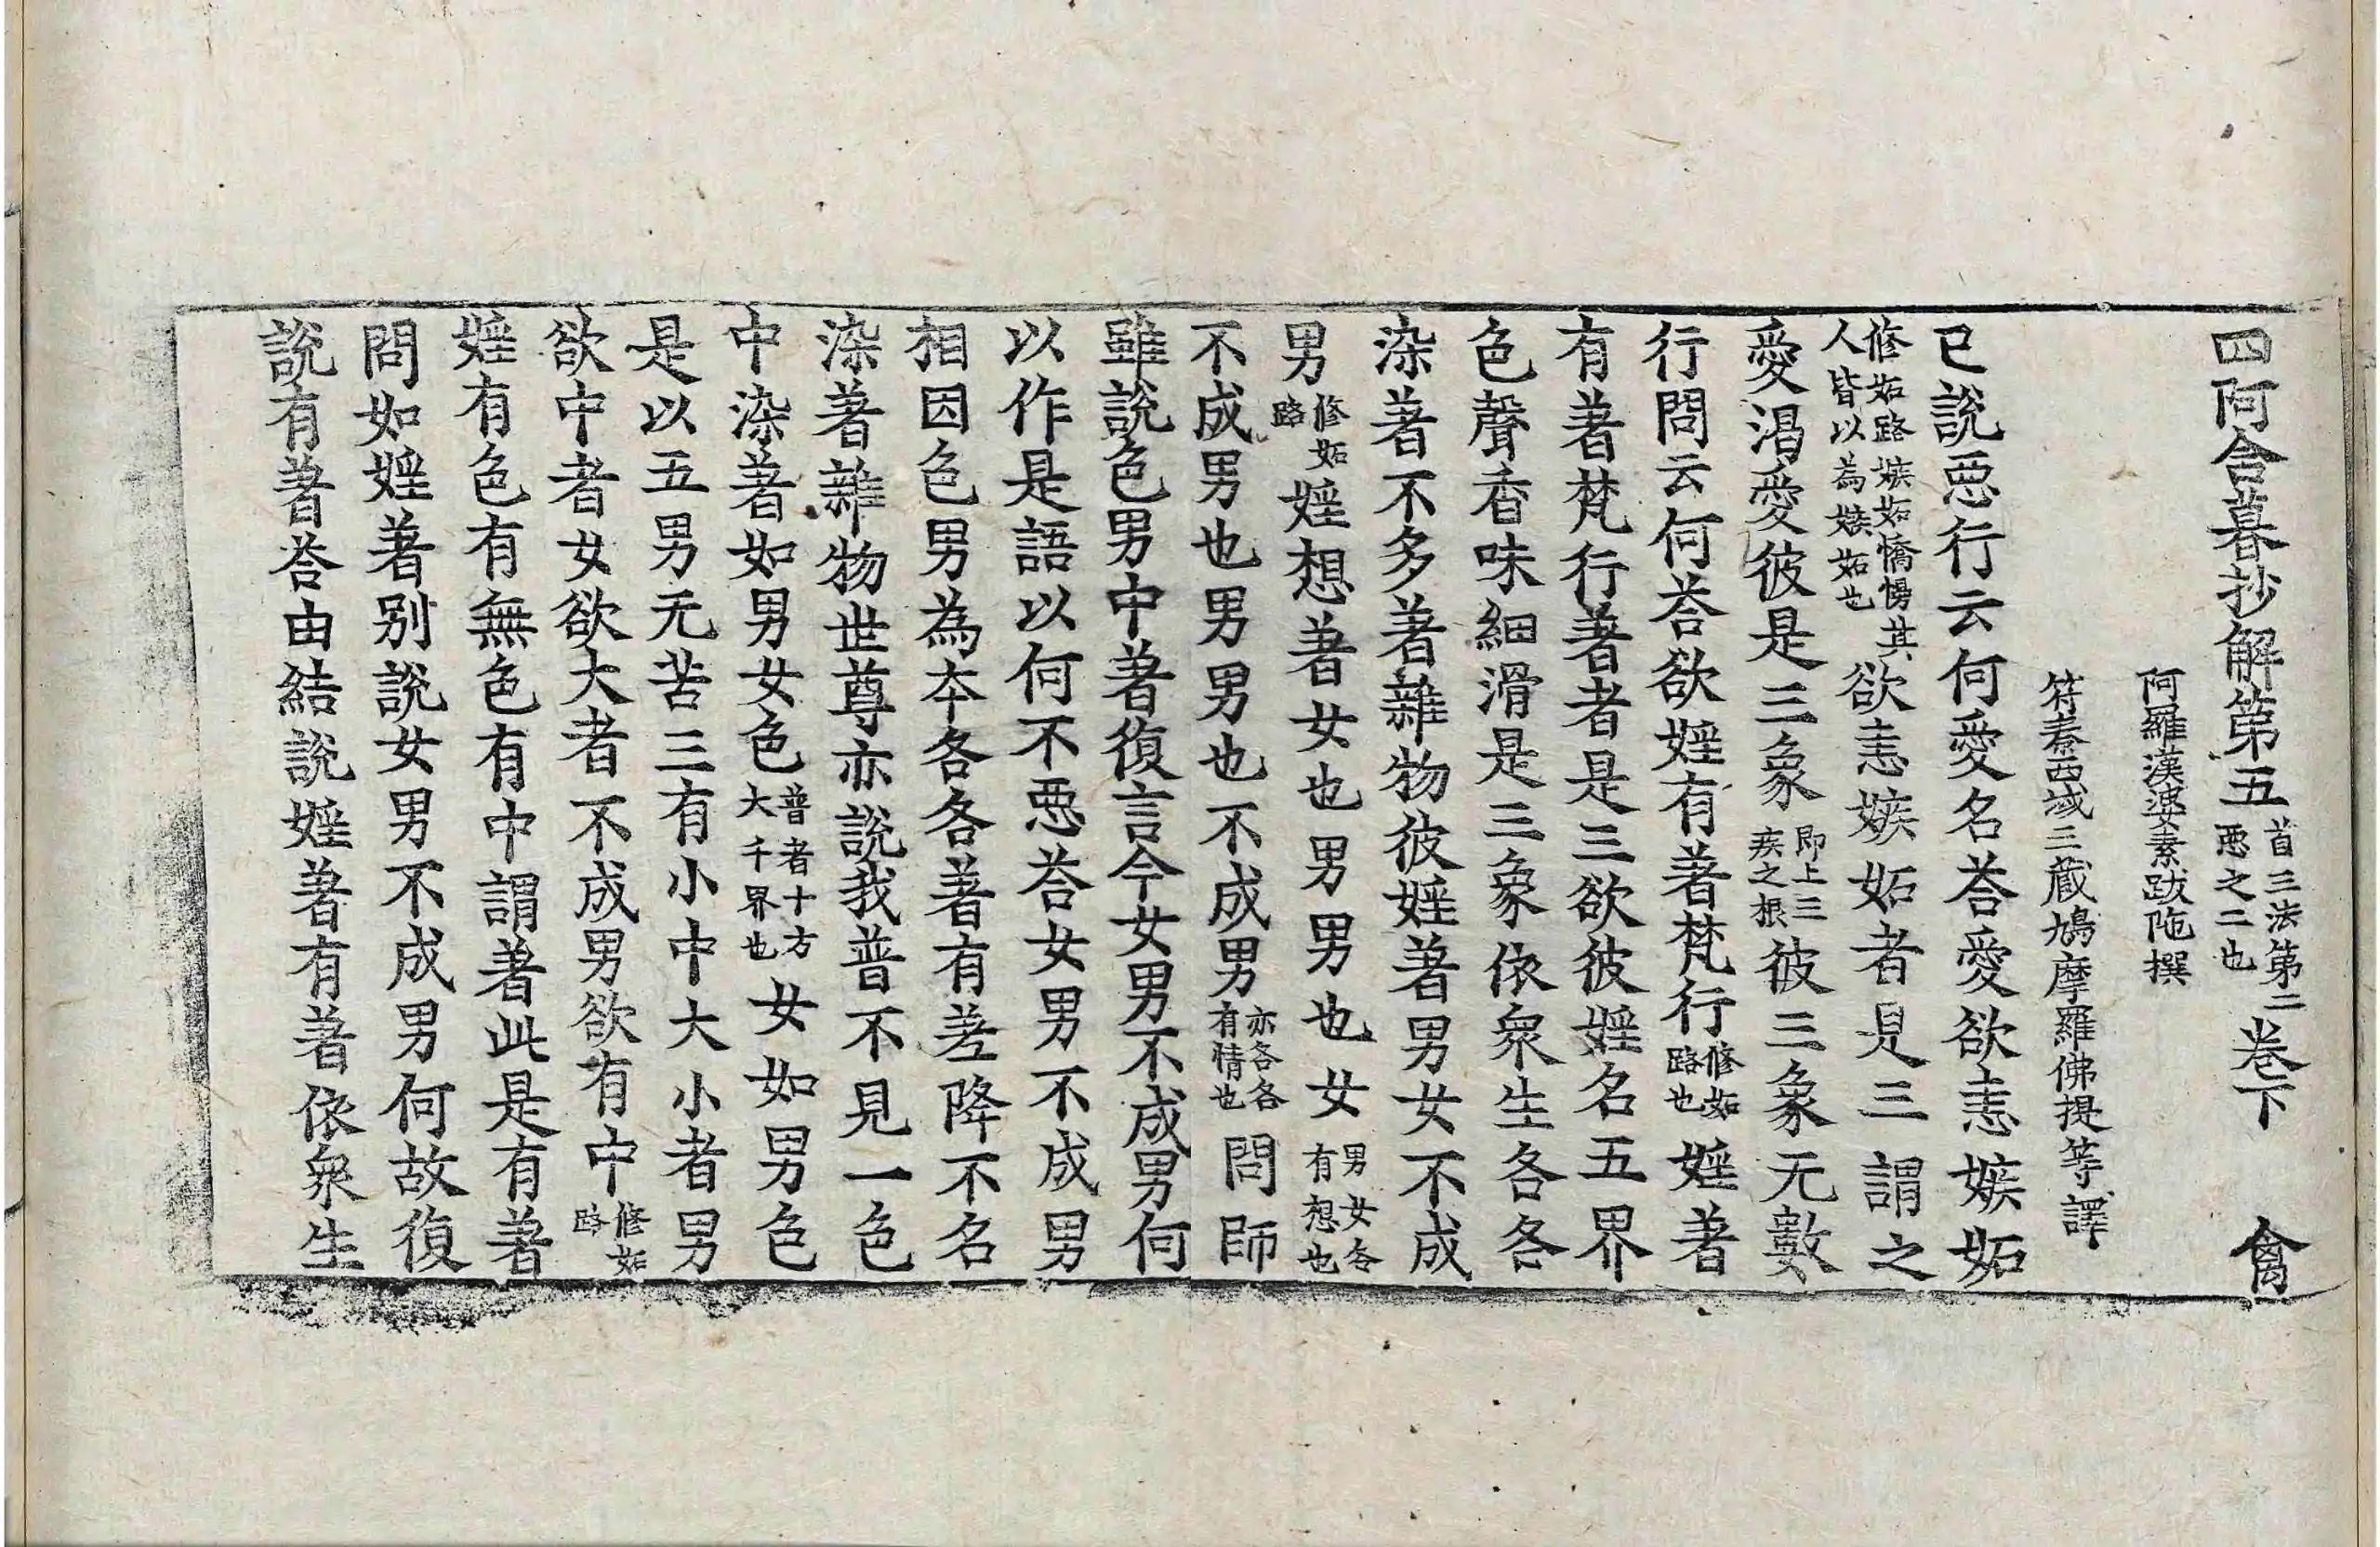 四阿含暮抄解第五首三法第二惡之二也卷下 禽
阿羅漢婆素跋陁撰
符秦西域三藏鳩摩羅佛提等譯
已說惡行云何愛名荅愛欲恚嫉妬
修妬路嫉妬憍慢其人皆以為嫉妬也欲恚嫉妬者是三謂之
愛渴愛彼是三象即上三疾之根彼三象无數
行問云何荅欲婬有著梵行修妬路也婬著
有著梵行著者是三欲彼婬名五界
色聲香味細滑是三象依衆生各各
染著不多著雜物彼婬著男女不成
男修妬路婬想著女也男男也女男女各有想也
不成男也男男也不成男亦各各有情也問師
雖說色男中著復言今女男不成男何
以作是語以何不惡荅女男不成男
相因色男為夲各各著有差降不名
染著雜物世尊亦說我普不見一色
中染著如男女色普者十方大千界也女如男色
是以五男无苦三有小中大小者男
欲中者女欲大者不成男欲有中修妬路
婬有色有無色有中謂著此是有著
問如婬著别說女男不成男何故復
說有著荅由結說婬著有著依衆生